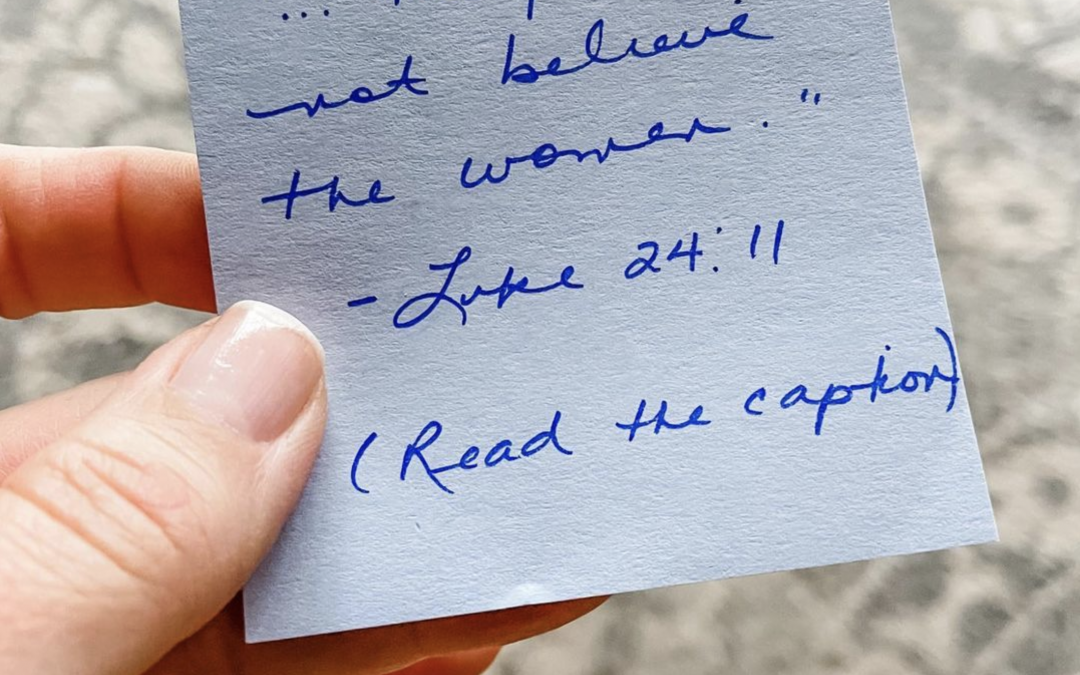 ...
not believe
the women."
- Luke 24:11
(Read the caption)